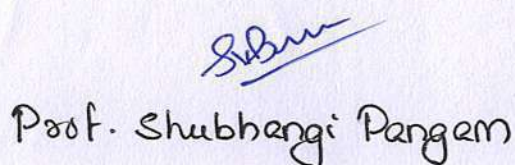 Prof. Shubhangi Pangam